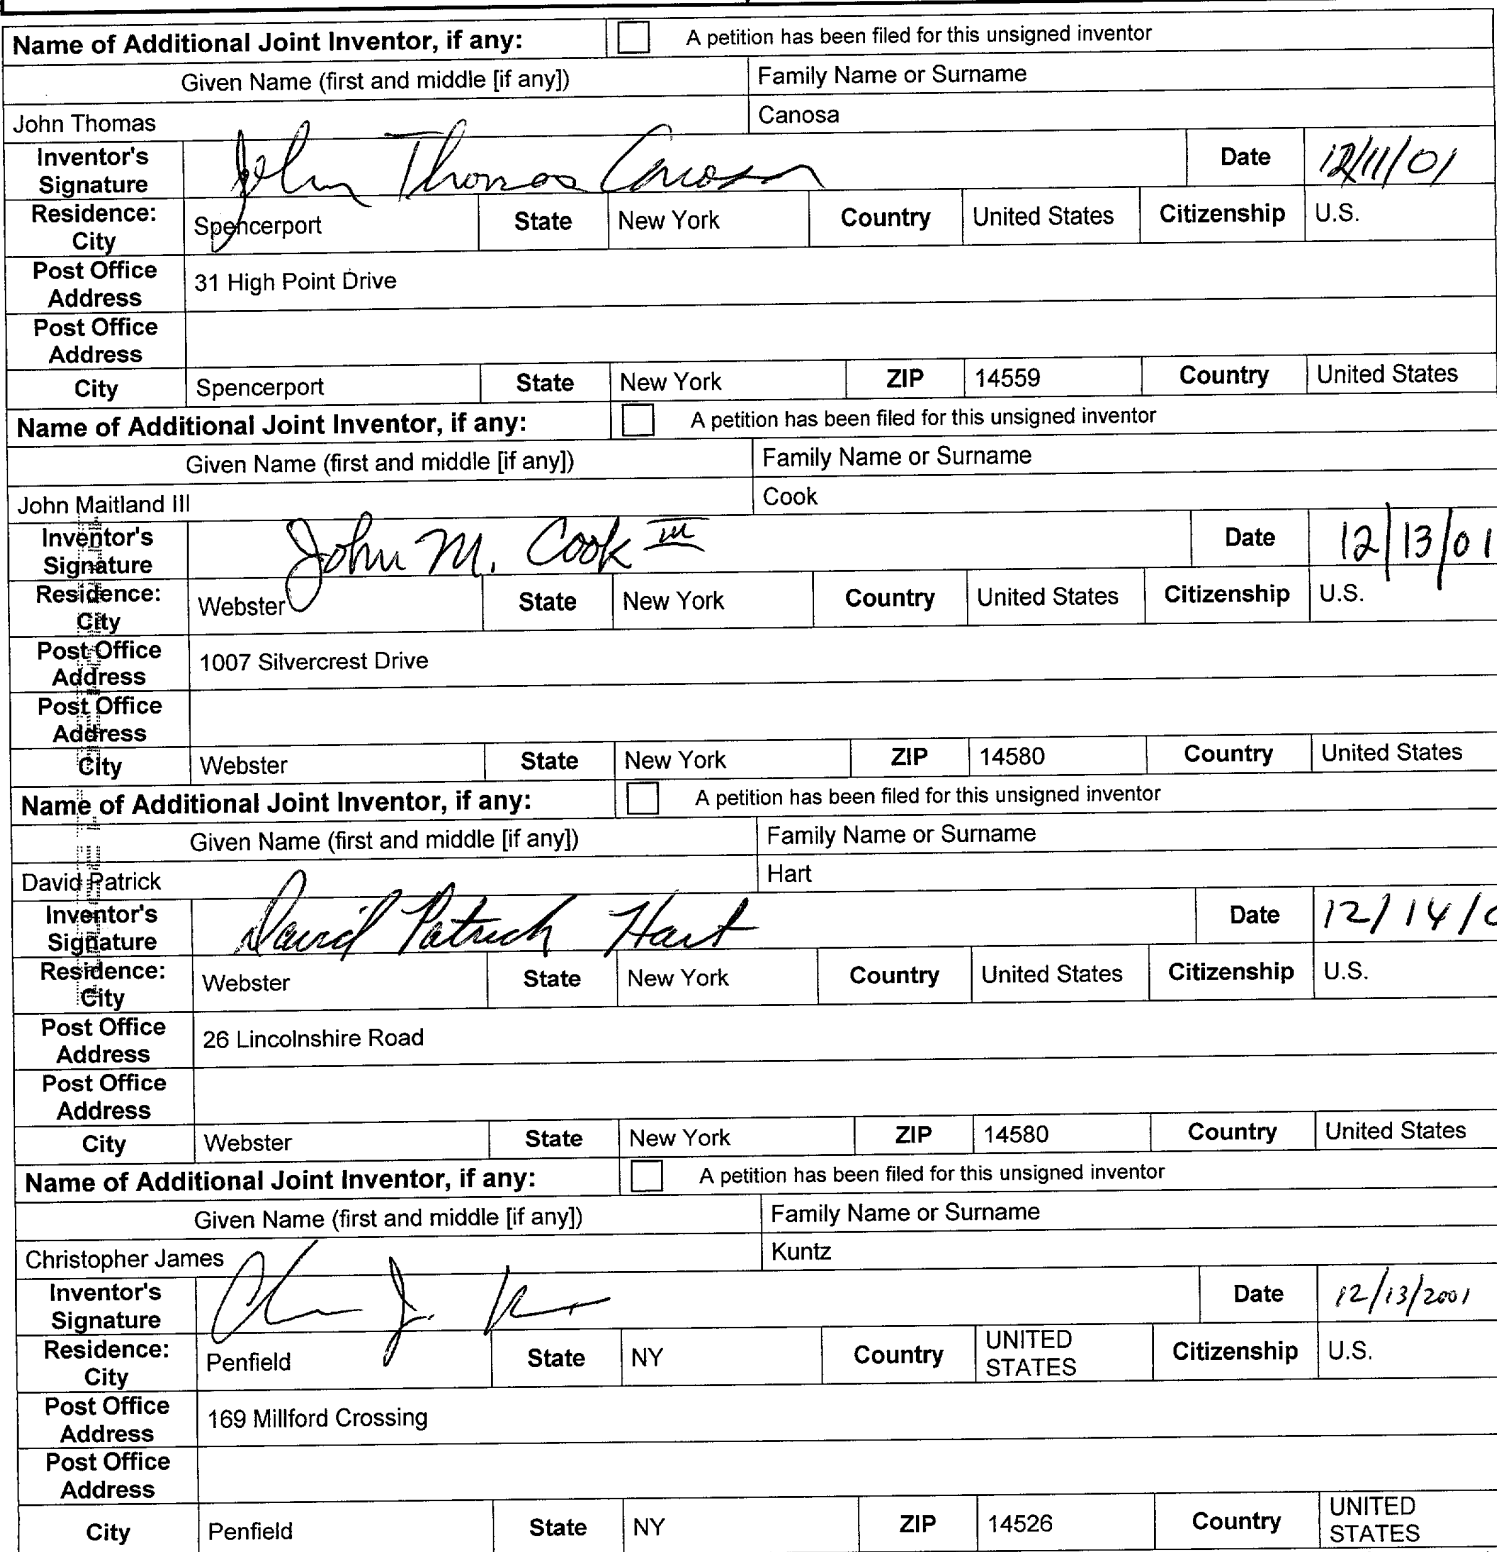 Name of Additional Joint Inventor, if any: A petition has been filed for this unsigned inventor
Given Name (first and middle [if any]) Family Name or Surname
John Thomas Canosa
Inventor's Signature John Thomas Canosa Date 12/11/01
Residence: City Spencerport State New York Country United States Citizenship U.S.
Post Office Address 31 High Point Drive
Post Office Address
City Spencerport State New York ZIP 14559 Country United States
Name of Additional Joint Inventor, if any: A petition has been filed for this unsigned inventor
Given Name (first and middle [if any]) Family Name or Surname
John Maitland III Cook
Inventor's Signature John M. Cook III Date 12/13/01
Residence: City Webster State New York Country United States Citizenship U.S.
Post Office Address 1007 Silvercrest Drive
Post Office Address
City Webster State New York ZIP 14580 Country United States
Name of Additional Joint Inventor, if any: A petition has been filed for this unsigned inventor
Given Name (first and middle [if any]) Family Name or Surname
David Patrick Hart
Inventor's Signature David Patrick Hart Date 12/14/0
Residence: City Webster State New York Country United States Citizenship U.S.
Post Office Address 26 Lincolnshire Road
Post Office Address
City Webster State New York ZIP 14580 Country United States
Name of Additional Joint Inventor, if any: A petition has been filed for this unsigned inventor
Given Name (first and middle [if any]) Family Name or Surname
Christopher James Kuntz
Inventor's Signature J. Date 12/13/2001
Residence: City Penfield State NY Country UNITED STATES Citizenship U.S.
Post Office Address 169 Millford Crossing
Post Office Address
City Penfield State NY ZIP 14526 Country UNITED STATES